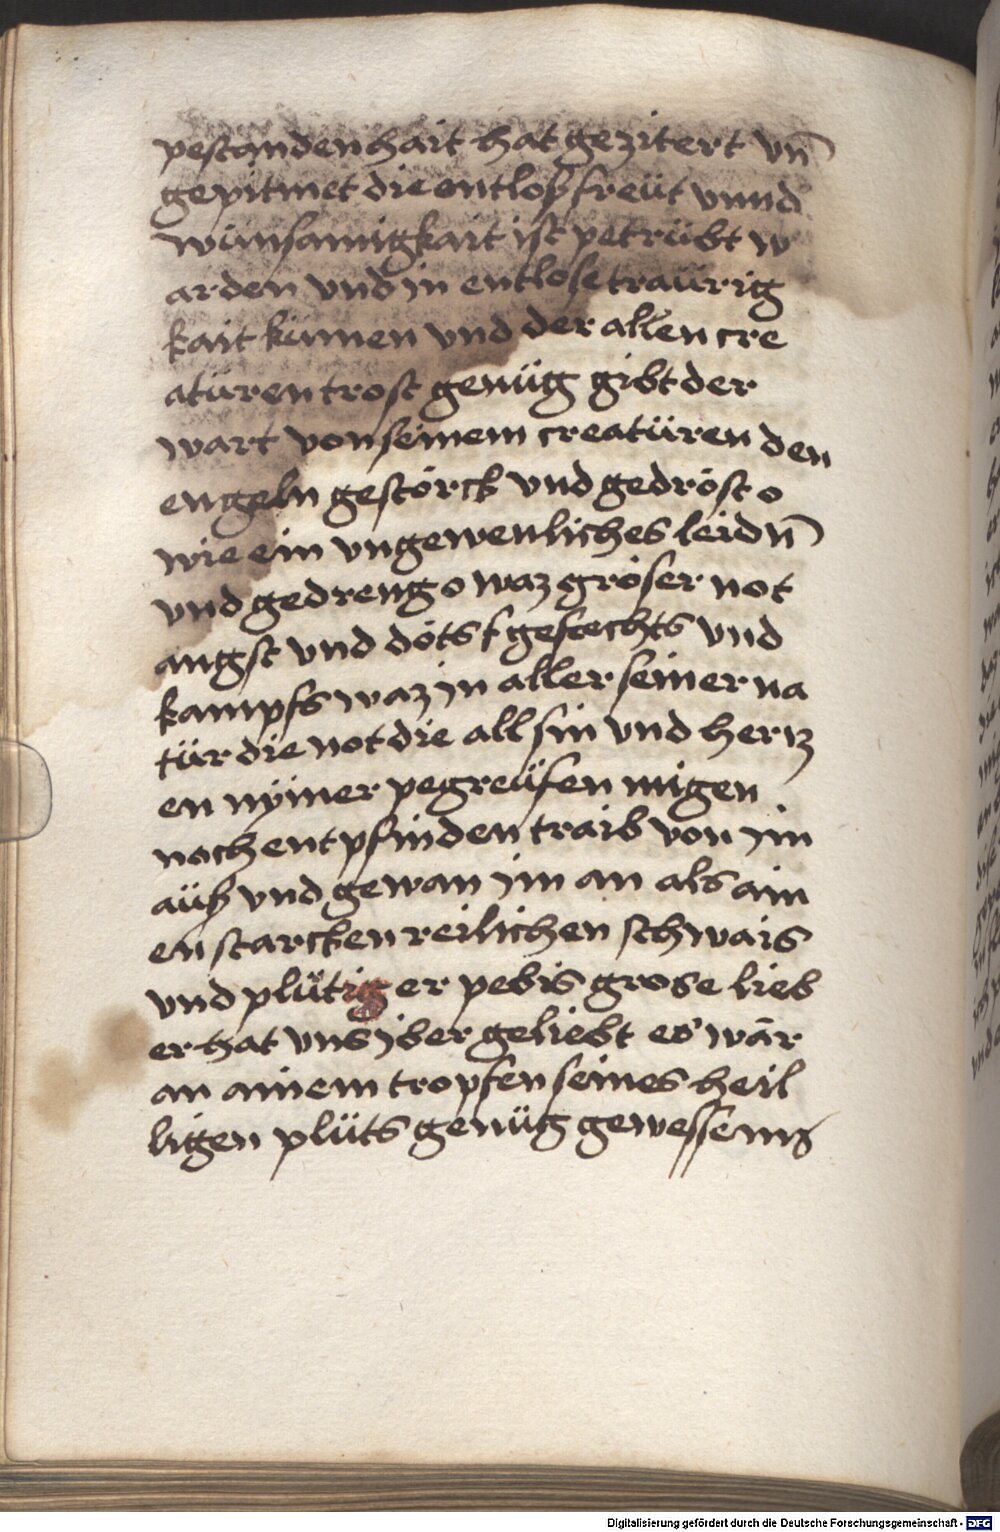 pestandenhait hat gezitert vn̄
gepitmet die entlosz freüt vnnd
wunsamigkait ist petrübt w
arden vnd in entlose traürig
kait kumen vnd der allen cre
atüren trost genüg gibt der
wart von seinem creatüren den
engeln gestörck vnd gedröst o
wie ein vngewenliches leidn̄
vnd gedreng o waz gröser not
angst vnd döts f gefechts vnd
kampfs waz in aller seiner na
tür die not die all sin vnd hertz
en nÿmer pegreüfen migen
noch entpfinden traib von im
aüsz vnd gewan im an als ain
en starcken reilichen schwais
vnd plütiger pebis grose lieb
er hat vns iber geliebt es wār
an ainem tropfen seines heil
ligen plüts genüg gewessen
Digitalisierung gefördert durch die Deutsche Forschungsgemeinschaft - DFG